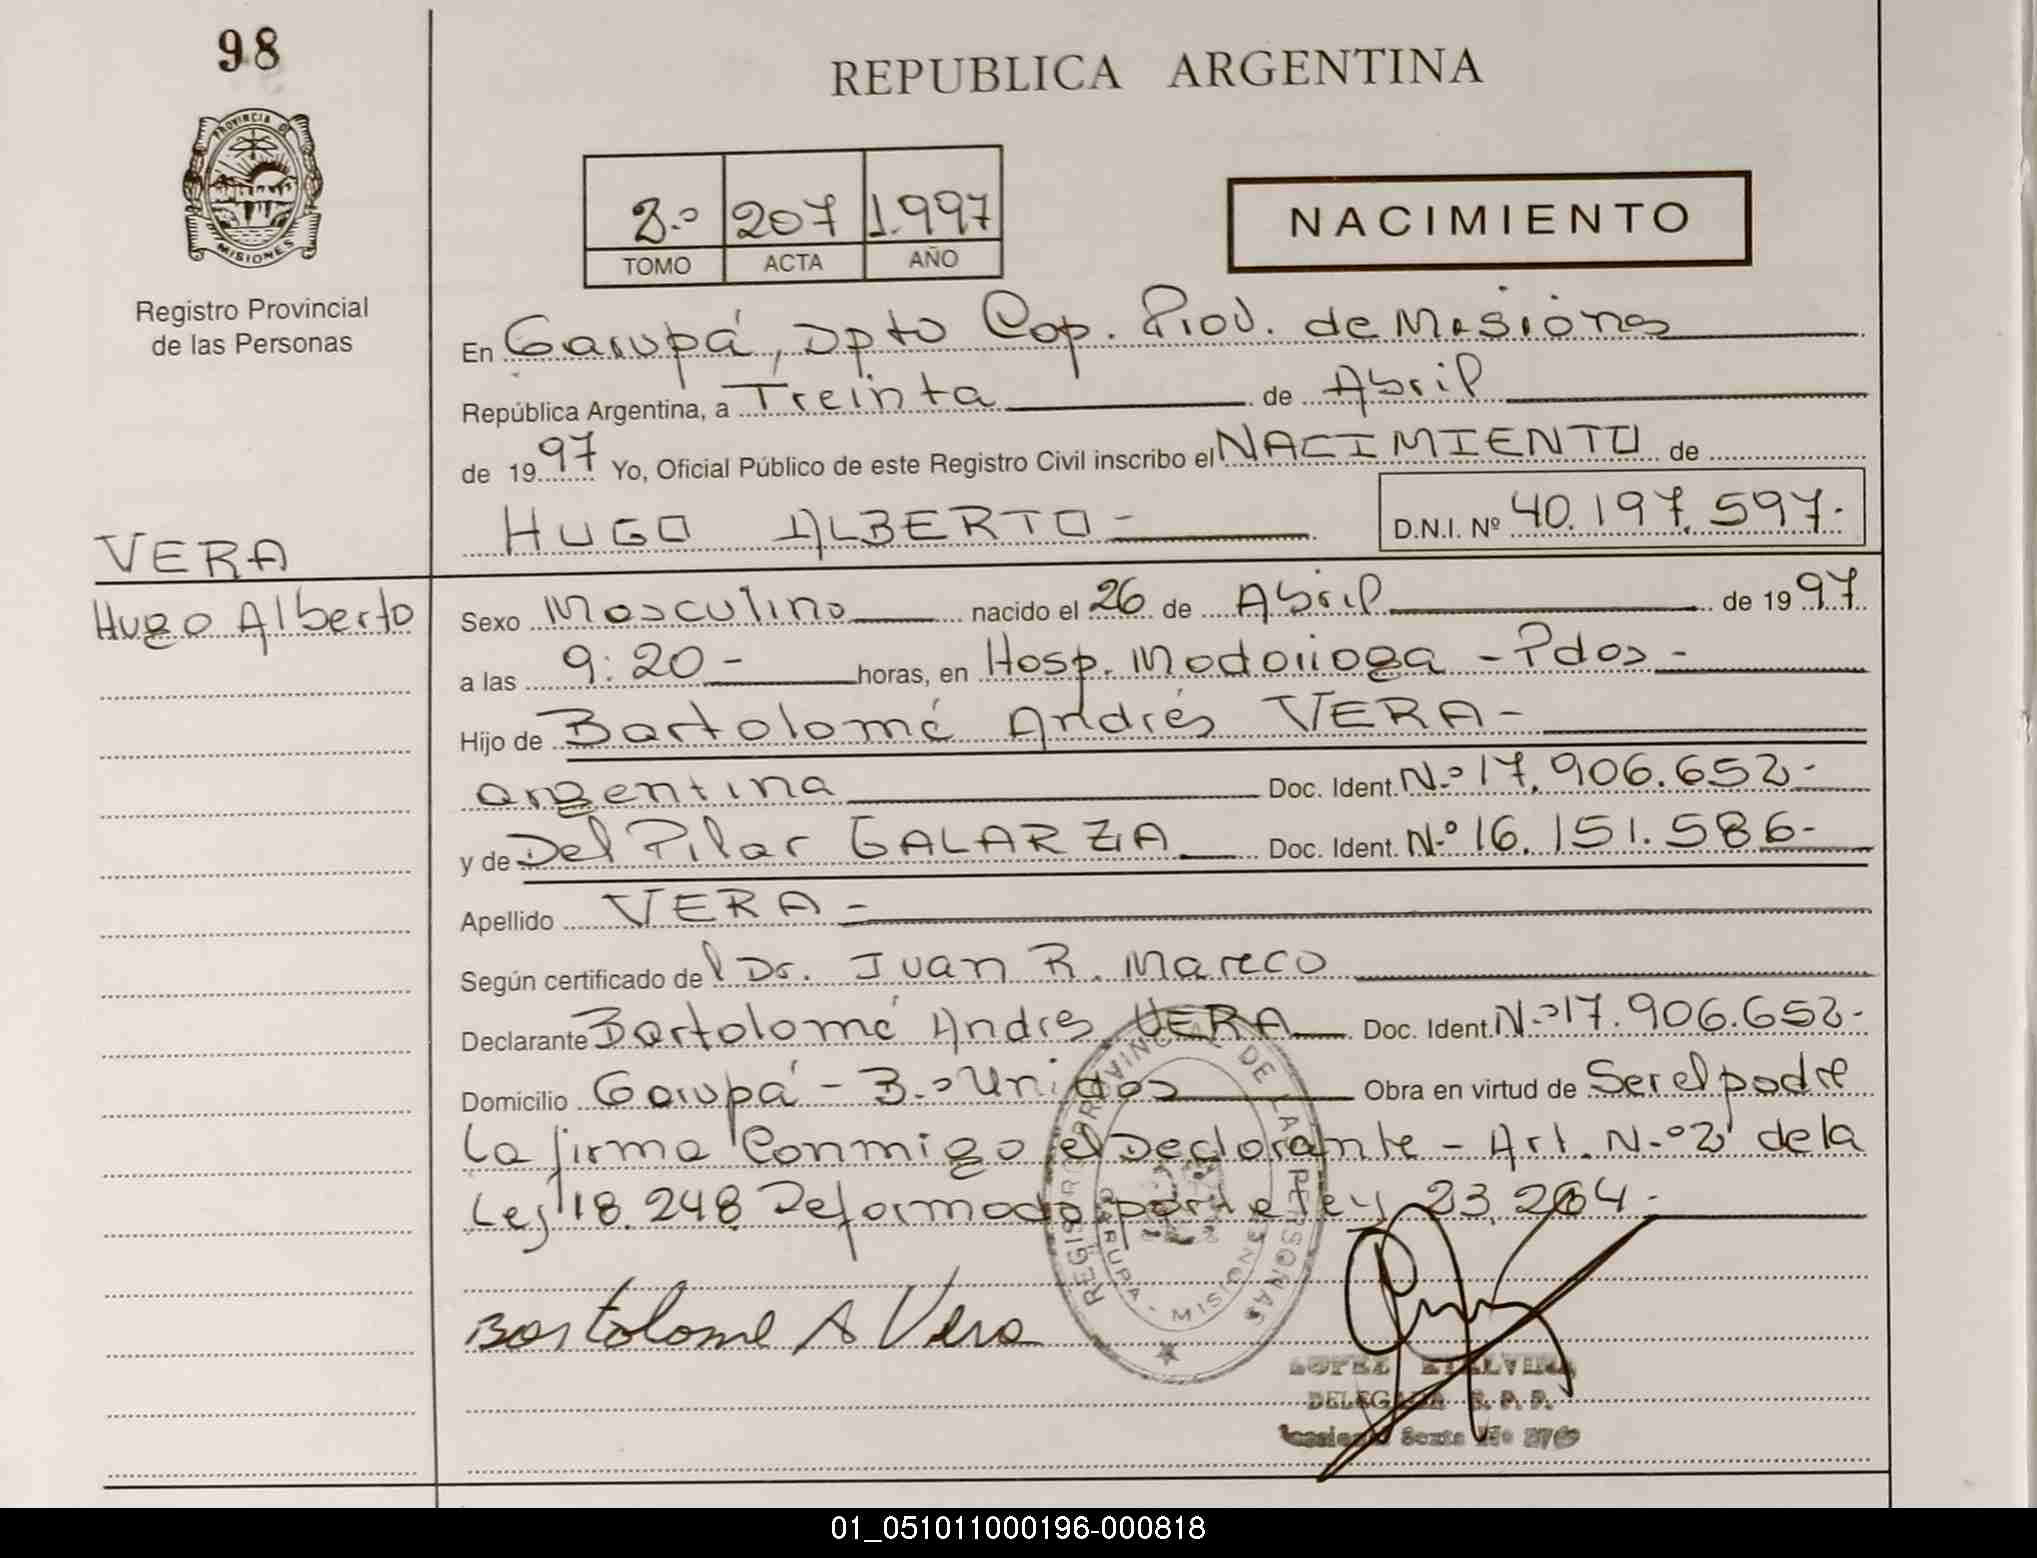 98
REPUBLICA ARGENTINA
PROVINCIA DE
MISIONES
Registro Provincial
de las Personas
2.º 207 1.997
TOMO ACTA AÑO
NACIMIENTO
En Garupá, Dpto Cap. Prov. de Misiones
República Argentina, a Treinta de Abril
de 1997 Yo, Oficial Público de este Registro Civil inscribo el NACIMIENTO de
HUGO ALBERTO - D.N.I. Nº 40.197.597.-
VERA
Hugo Alberto
Sexo Masculino nacido el 26 de Abril de 1997
a las 9:20 - horas, en Hosp. Madariaga - Pdas -
Hijo de Bartolomé Andrés VERA -
argentina Doc. Ident. N.º 17.906.652.-
y de Del Pilar GALARZA Doc. Ident. N.º 16.151.586-
Apellido VERA -
Según certificado del Dr. Juan R. Mareco
Declarante Bartolomé Andrés VERA Doc. Ident. N.º 17.906.652-
Domicilio Garupá - B.º Unidos Obra en virtud de Ser el padre
La firma Conmigo el Declarante - Art. N.º 2 de la
Ley 18.248 Reformada por la Ley 23.264.-
REGISTRO PROVINCIAL DE LAS PERSONAS
GARUPA - MISIONES
Bartolome A Vera
LOPEZ ETELVINA
DELEGADA R. P. P.
01_051011000196-000818